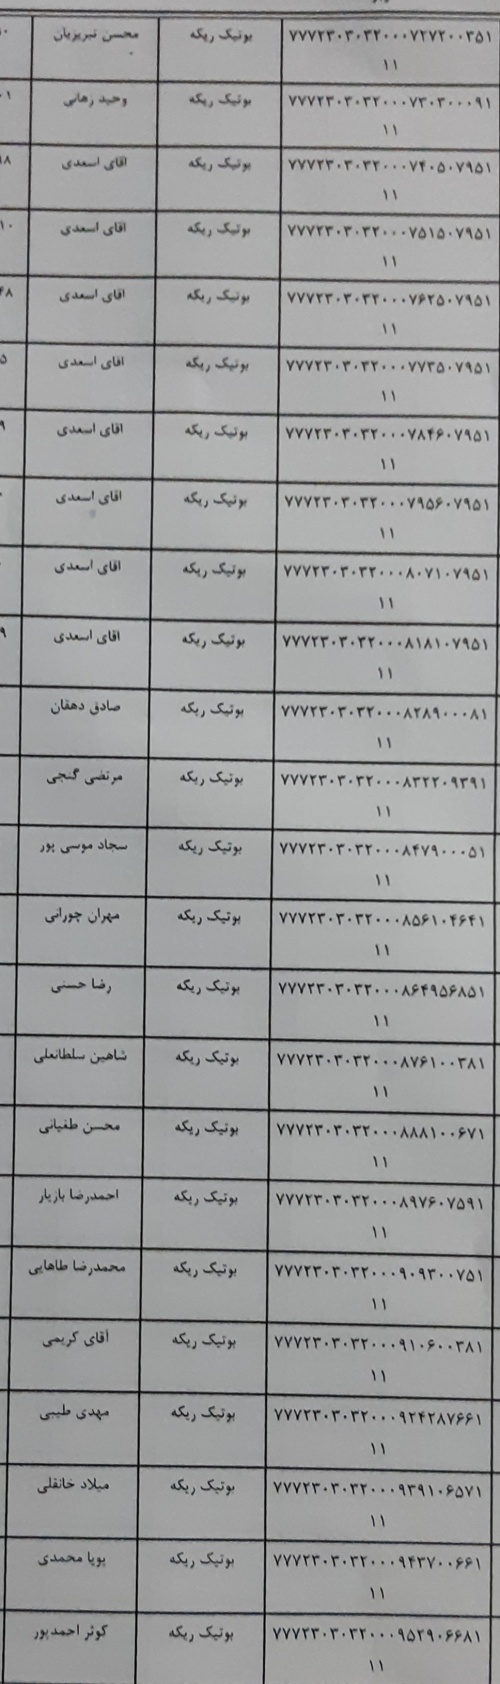 ۷۷۷۲۳۰۳۰۳۲۰۰۰۷۲۷۲۰۰۳۵۱ بوتیک ریکه محسن تبریزیان
۱۱
۷۷۷۲۳۰۳۰۳۲۰۰۰۷۳۰۳۰۰۰۹۱ بوتیک ریکه وحید رهایی
۱۱
۷۷۷۲۳۰۳۰۳۲۰۰۰۷۴۰۵۰۷۹۵۱ بوتیک ریکه اقای اسعدی
۱۱
۷۷۷۲۳۰۳۰۳۲۰۰۰۷۵۱۵۰۷۹۵۱ بوتیک ریکه اقای اسعدی
۱۱
۷۷۷۲۳۰۳۰۳۲۰۰۰۷۶۲۵۰۷۹۵۱ بوتیک ریکه اقای اسعدی
۱۱
۷۷۷۲۳۰۳۰۳۲۰۰۰۷۷۳۵۰۷۹۵۱ بوتیک ریکه اقای اسعدی
۱۱
۷۷۷۲۳۰۳۰۳۲۰۰۰۷۸۴۶۰۷۹۵۱ بوتیک ریکه اقای اسعدی
۱۱
۷۷۷۲۳۰۳۰۳۲۰۰۰۷۹۵۶۰۷۹۵۱ بوتیک ریکه اقای اسعدی
۱۱
۷۷۷۲۳۰۳۰۳۲۰۰۰۸۰۷۱۰۷۹۵۱ بوتیک ریکه اقای اسعدی
۱۱
۷۷۷۲۳۰۳۰۳۲۰۰۰۸۱۸۱۰۷۹۵۱ بوتیک ریکه اقای اسعدی
۱۱
۷۷۷۲۳۰۳۰۳۲۰۰۰۸۲۸۹۰۰۰۸۱ بوتیک ریکه صادق دهقان
۱۱
۷۷۷۲۳۰۳۰۳۲۰۰۰۸۳۲۲۰۹۳۹۱ بوتیک ریکه مرتضی گنجی
۱۱
۷۷۷۲۳۰۳۰۳۲۰۰۰۸۴۷۹۰۰۰۵۱ بوتیک ریکه سجاد موسی پور
۱۱
۷۷۷۲۳۰۳۰۳۲۰۰۰۸۵۶۱۰۴۶۴۱ بوتیک ریکه مهران چورانی
۱۱
۷۷۷۲۳۰۳۰۳۲۰۰۰۸۶۴۹۵۶۸۵۱ بوتیک ریکه رضا حسنی
۱۱
۷۷۷۲۳۰۳۰۳۲۰۰۰۸۷۶۱۰۰۳۸۱ بوتیک ریکه شاهین سلطانعلی
۱۱
۷۷۷۲۳۰۳۰۳۲۰۰۰۸۸۸۱۰۰۶۷۱ بوتیک ریکه محسن طغیانی
۱۱
۷۷۷۲۳۰۳۰۳۲۰۰۰۸۹۷۶۰۷۵۹۱ بوتیک ریکه احمدرضا بازیار
۱۱
۷۷۷۲۳۰۳۰۳۲۰۰۰۹۰۹۳۰۰۷۵۱ بوتیک ریکه محمدرضا طاهایی
۱۱
۷۷۷۲۳۰۳۰۳۲۰۰۰۹۱۰۶۰۰۳۸۱ بوتیک ریکه آقای کریمی
۱۱
۷۷۷۲۳۰۳۰۳۲۰۰۰۹۲۴۲۸۷۶۶۱ بوتیک ریکه مهدی طیبی
۱۱
۷۷۷۲۳۰۳۰۳۲۰۰۰۹۳۹۱۰۶۵۷۱ بوتیک ریکه میلاد خانقلی
۱۱
۷۷۷۲۳۰۳۰۳۲۰۰۰۹۴۳۷۰۰۶۶۱ بوتیک ریکه پویا محمدی
۱۱
۷۷۷۲۳۰۳۰۳۲۰۰۰۹۵۲۹۰۶۶۸۱ بوتیک ریکه کوثر احمدپور
۱۱